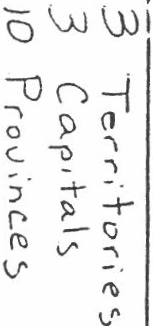 3 Territories
3 Capitals
10 Provinces